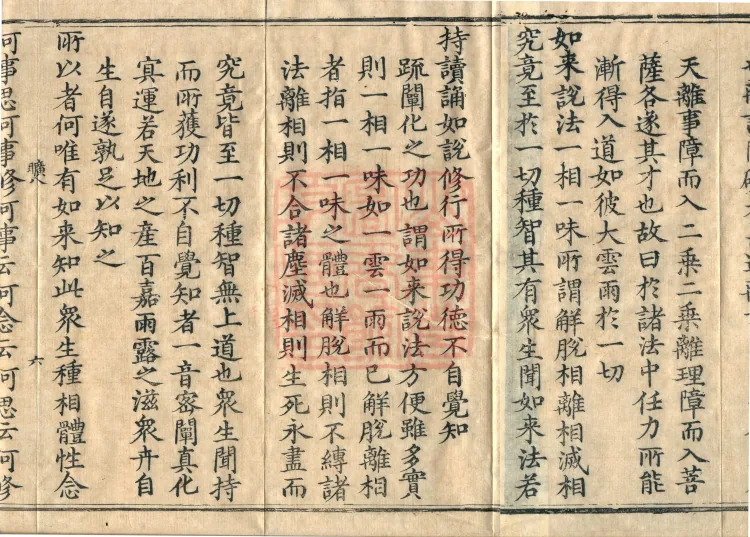 天離事障而入二乘二乘離理障而入菩
薩各遂其才也故曰於諸法中任力所能
漸得入道如彼大雲雨於一切
如来說法一相一味所謂解脫相離相滅相
究竟至於一切種智其有衆生聞如来法若
持讀誦如說修行所得功德不自覺知
䟽闡化之功也謂如来說法方便雖多實
則一相一味如一雲一雨而已解脫離相
者指一相一味之體也解脫相則不縛諸
法離相則不合諸塵滅相則生死永盡而
究竟皆至一切種智無上道也衆生聞持
而所獲功利不自覺知者一音密闡真化
冥運若天地之産百嘉雨露之滋衆卉自
生自遂孰足以知之
所以者何唯有如来知此衆生種相體性念
曠八
六
何事思何事修何事云何念云何思云何修